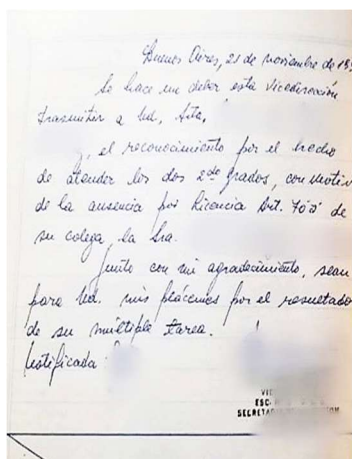 Buenos Aires, 21 de noviembre de 19
Se hace un deber esta Vicedirección
trasmitir a Ud, Srta,
, el reconocimiento por el hecho
de atender los dos 2dos grados, con motiv
de la ausencia por licencia Art. 70 de
su colega, la Sra.
Junto con mi agradecimiento, sean
para Ud. mis plácemes por el resultado
de su múltiple tarea.
Notificada
VI
ESC
SECRETA